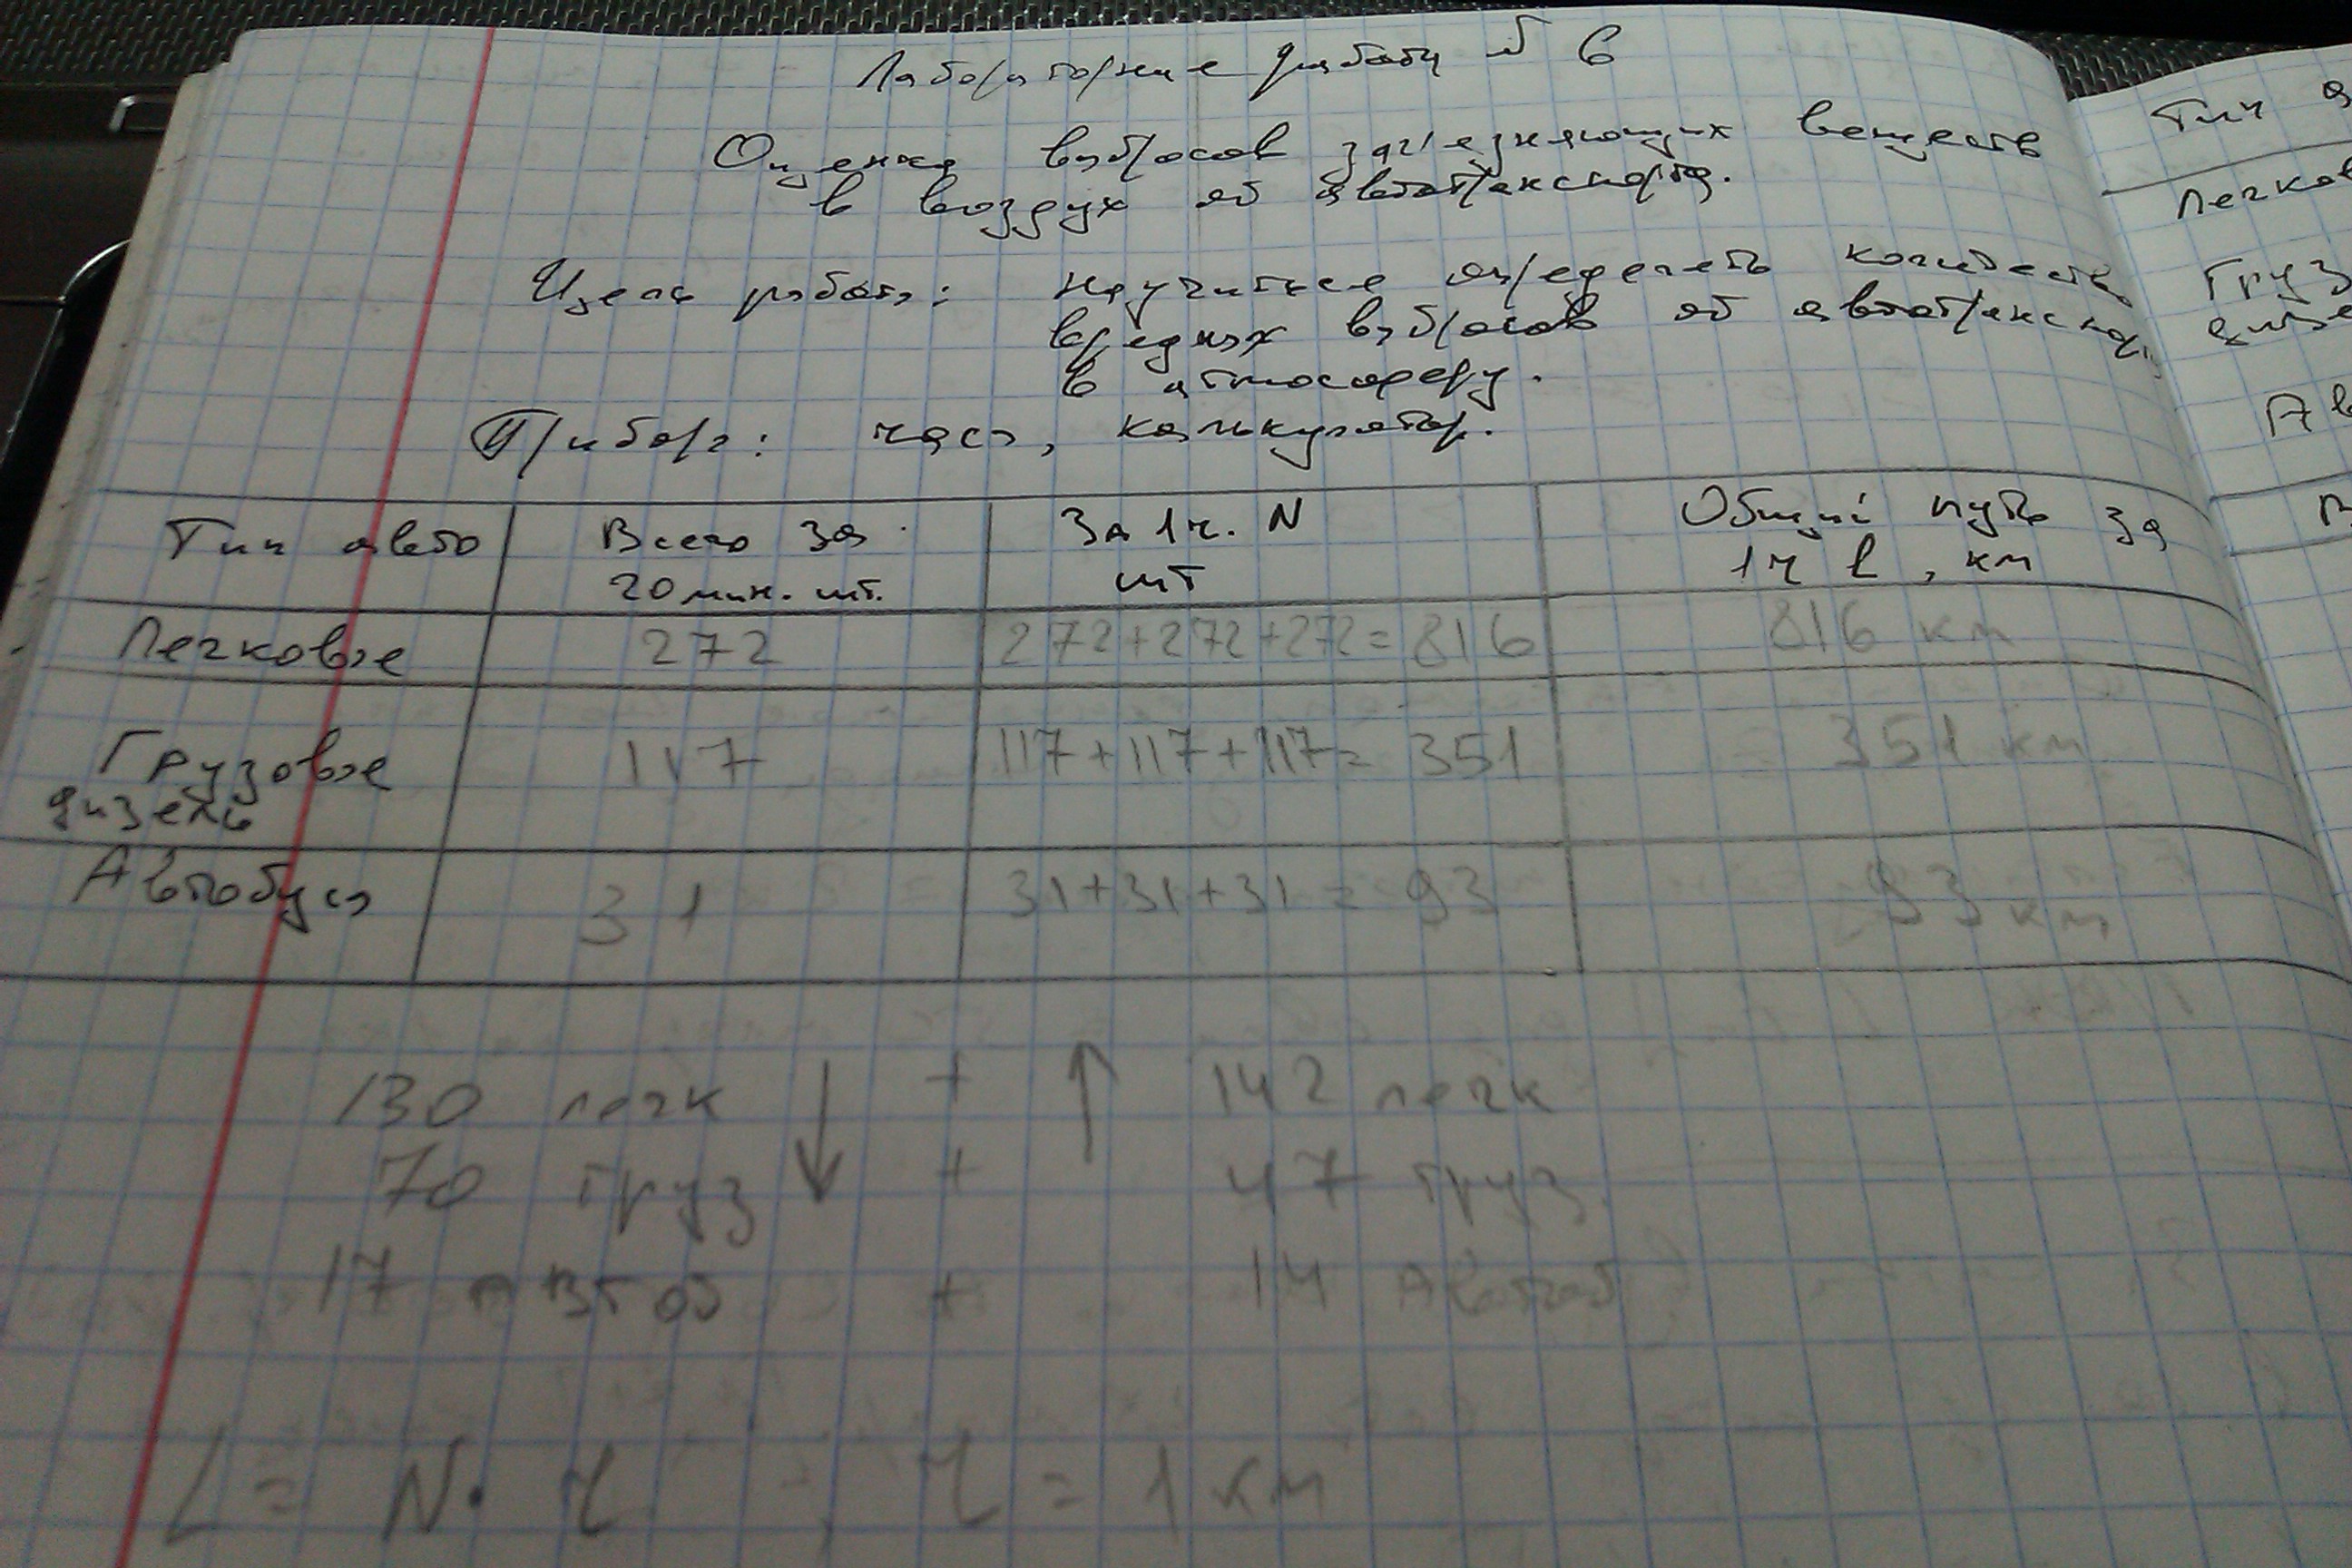 Лабораторная работа № 6
Оценка выбросов загрязняющих веществ
в воздух от автотранспорта.
Цель работы: научиться определять количество
вредных выбросов от автотранспор
в атмосферу.
Приборы: часы, калькулятор.
Тип авто Всего за 20 мин. шт. За 1ч. N шт Общий путь за 1ч l, км
Легковые 272 272+272+272=816 816 км
Грузовые дизель 117 117+117+117= 351 351 км
Автобусы 31 31+31+31= 93 93 км
130 легк ↓ + ↑ 142 легк
70 груз + 47 груз.
17 автоб + 14 Автоб
L = N· l ; l = 1 км
Тип а
Легков
Груз
дизе
Ав